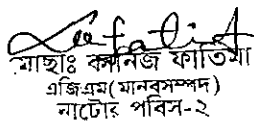 মোছাঃ কানিজ ফাতিমা
এজিএম(মানবসম্পদ)
নাটোর পবিস-২